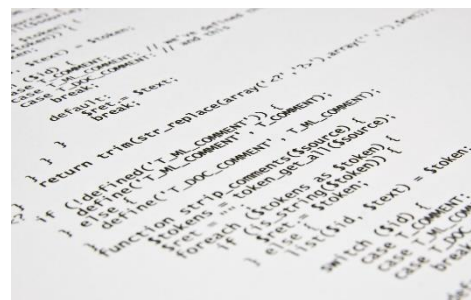 $token)) {
$text) = $token;
($id) {
case T_COMMENT:
case T_ML_COMMENT: // we've defined
case T_DOC_COMMENT: // and this
break;
default:
$ret .= $text;
break;
}
}
}
return trim(str_replace(array('<?','?>'),array('',''),$ret));
}
if (!defined('T_ML_COMMENT')) {
define('T_ML_COMMENT', T_COMMENT);
} else {
define('T_DOC_COMMENT', T_ML_COMMENT);
}
function strip_comments($source) {
$tokens = token_get_all($source);
$ret =
foreach ($tokens as $token) {
if (is_string($token)) {
$ret .= $token;
} else {
list($id, $text) = $token;
switch ($id) {
case T_COMMENT:
case T_ML_COM
case T_DOC
break
def